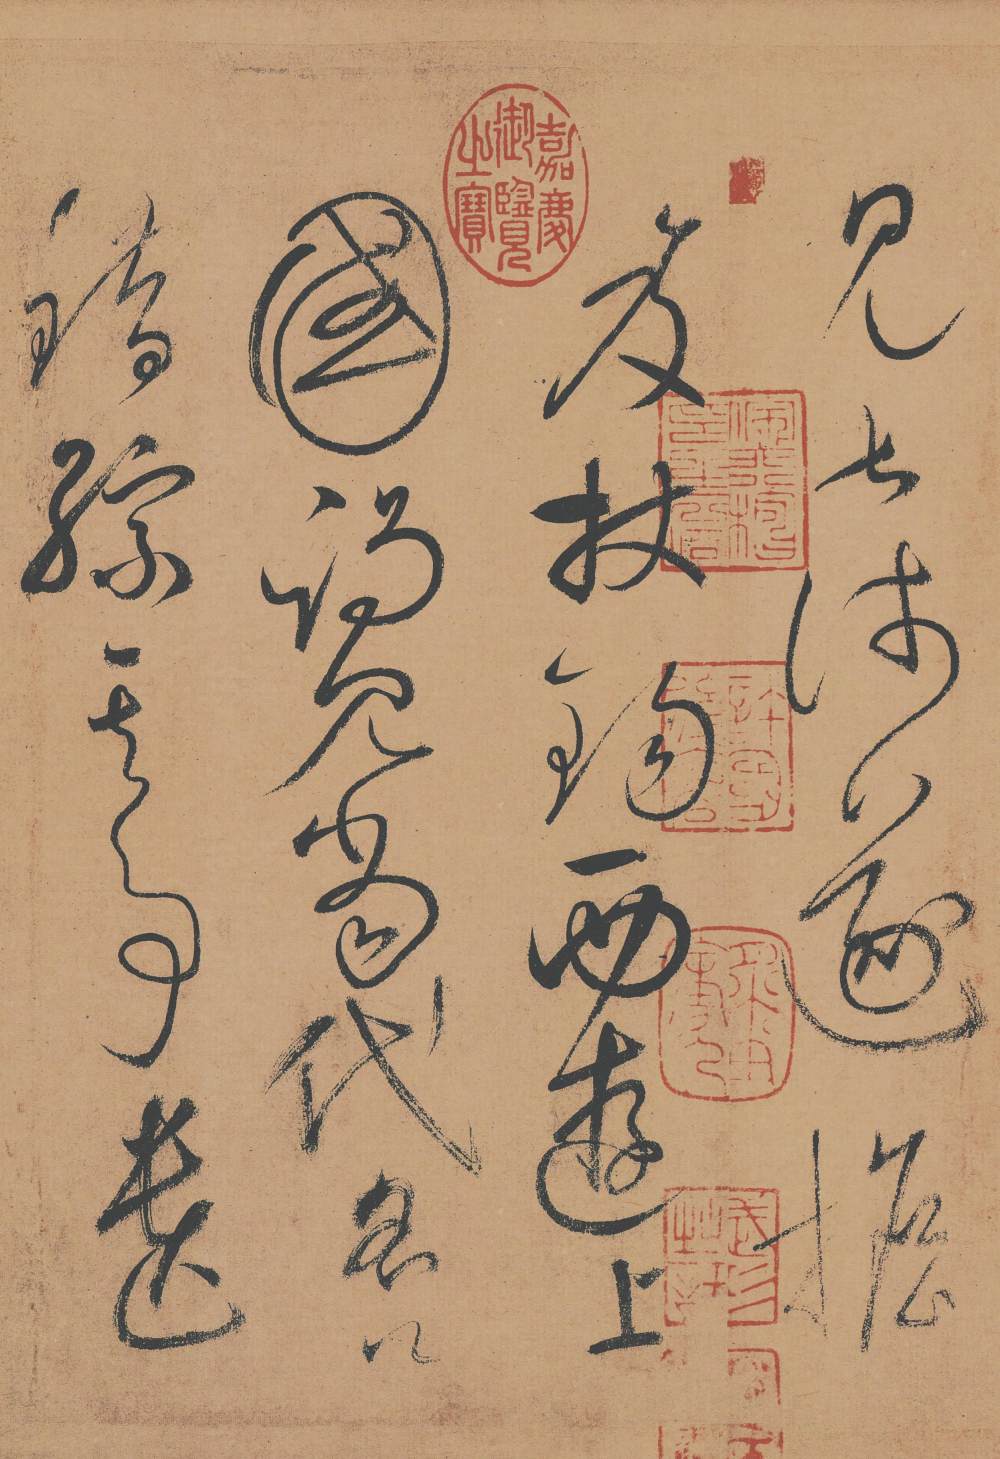 見甚淺遂擔
笈杖錫西遊上
國謁見當代名公
錯綜其事遺
嘉慶御覽之寶